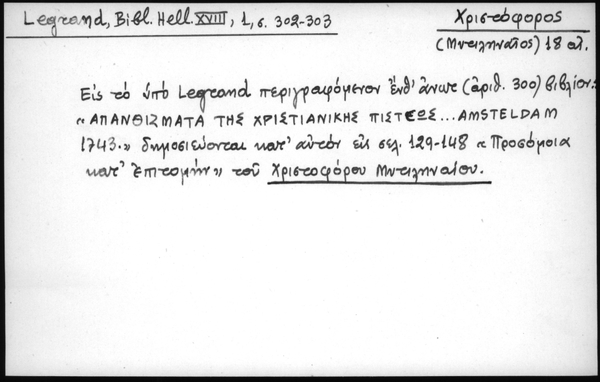 Legrand, Bibl. Hell. XVIII, 1, σ. 302-303
Χριστόφορος
(Μυτιληναῖος) 18 αἰ.
Εἰς τὸ ὑπὸ Legrand περιγραφόμενον ἔνθ' ἄνωτ (ἀριθ. 300) βιβλίον:
« ΑΠΑΝΘΙΣΜΑΤΑ ΤΗΣ ΧΡΙΣΤΙΑΝΙΚΗΣ ΠΙΣΤΕΩΣ... AMSTELDAM
1743.» δημοσιεύονται κατ' αὐτὸν εἰς σελ. 129-148 « Προσόμοια
κατ' Ἐπιτομήν» τοῦ Χριστοφόρου Μυτιληναίου.